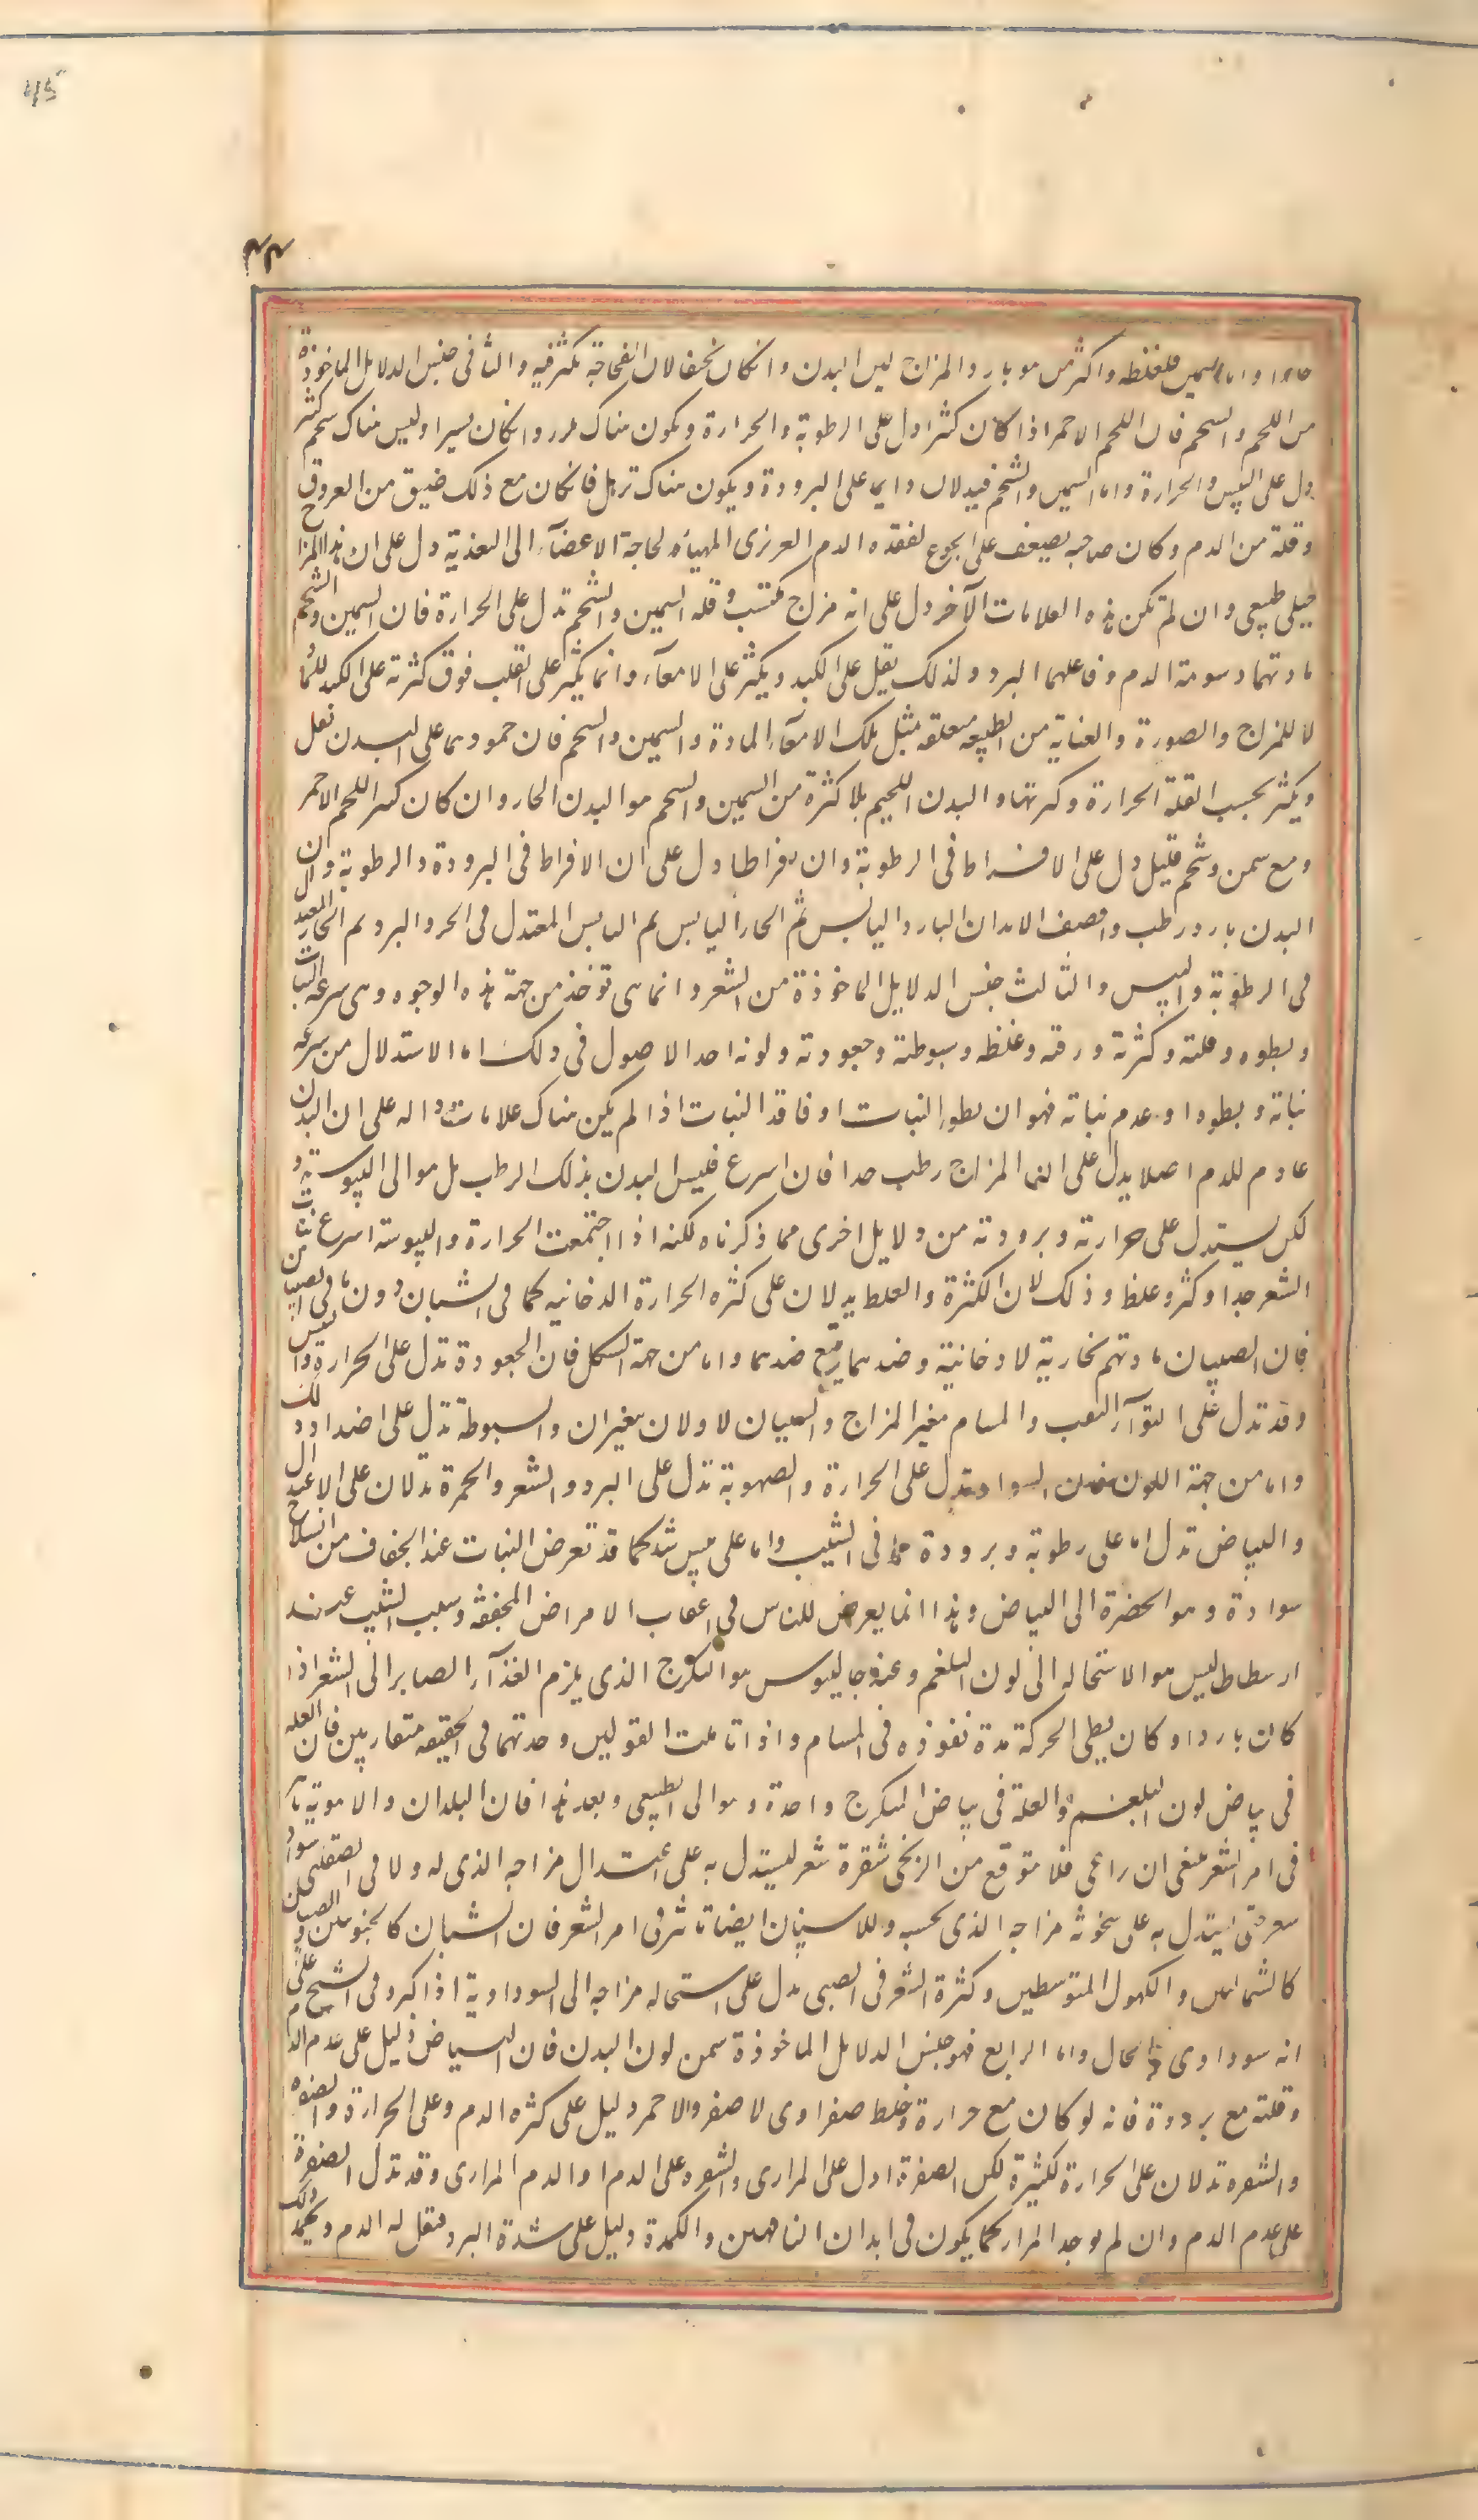 45
٤٤
حارا واما السمين فلغلظه واكثر من هو بارد المزاج لين البدن وان كان نحيفا لان الفجاجة تكثر فيه والثانى جنس الدلايل الماخوذة
من اللحم والشحم فان اللحم الاحمر اذا كان كثيرا دل على الرطوبة والحرارة ويكون هناك تلزز وان كان يسيرا وليس هناك شحم كثير
دل على اليبس والحرارة واما السمين والشحم فيدلان دايما على البرودة ويكون هناك ترهل فان كان مع ذلك ضيق من العروق
وقلة من الدم وكان صاحبه يضعف على الجوع لفقده الدم الغريزى المهيأه لحاجة الاعضآء الى التغذية دل على ان هذا المزاج
جبلى طبيعى وان لم تكن هذه العلامات الآخر دل على انه مزاج مكتسب وقلة السمين والشحم تدل على الحرارة فان السمين والشحم
مادتهما دسومة الدم وفاعلهما البرد ولذلك يقل على الكبد ويكثر على الامعآء وانما يكثر على القلب فوق كثرته على الكبد للمادة
لا للمزاج والصورة والعناية من الطبيعه متعلقه بمثل تلك الامعآء المادة والسمين والشحم فان جمودهما على البدن يقل
ويكثر بحسب القلة الحرارة وكثرتها والبدن اللحيم بلا كثرة من السمين والشحم هو البدن الحار وان كان كثير اللحم الاحمر
ومع سمن وشحم قليل دل على الافراط فى الرطوبة وان افراطا دل على ان الافراط فى البرودة والرطوبة وان
البدن بارد رطب واقصف الابدان البارد اليابس ثم الحار اليابس ثم اليابس المعتدل فى الحر والبرد ثم الحار المعتدل
فى الرطوبة واليبس والثالث جنس الدلايل الماخوذة من الشعر وانما هى توخذ من جهة هذه الوجوه وهى سرعة النبات
وبطوه وقلته وكثرته ورقته وغلظه وسبوطته وجعودته ولونه احد الاصول فى ذلك اما الاستدلال من سرعة
نباته وبطوه او عدم نباته فهو ان بطو النبات او فاقد النبات اذا لم يكن هناك علامات داله على ان البدن
عادم للدم اصلا يدل على ان المزاج رطب جدا فان اسرع فليس البدن بذلك الرطب بل هو الى اليبوسة و
لكن يستدل على حرارته وبرودته من دلايل اخرى مما ذكرناه لكنه اذا اجتمعت الحرارة واليبوسة اسرع نبات
الشعر جدا وكثر وغلظ وذلك لان الكثرة والغلظ يدلان على كثره الحرارة الدخانيه كما فى الشبان دون ما فى الصبيان
فان الصبيان مادتهم بخارية لا دخانية وضدهما يتبع ضدهما واما من جهة الشكل فان الجعودة تدل على الحرارة واليبس
وقد تدل على التوآء الثقب والمسام بغير المزاج والسببان الاولان يتغيران والسبوطة تدل على اضداد ذلك
واما من جهة اللون فان السواد يدل على الحرارة والصهوبة تدل على البرد والشقر والحمرة تدلان على الاعتدال
والبياض تدل اما على رطوبة وبرودة كما فى الشيب واما على يبس شد كما قد تعرض النبات عند الجفاف من انسلاخ
سوادة وهو الخضرة الى البياض وهذا انما يعرض للناس فى اعقاب الامراض المجففة وسبب الشيب عند
ارسطاطاليس هو الاستحاله الى لون البلغم وعند جالينوس هو التكرج الذى يلزم الغذآء الصاير الى الشعر اذا
كان باردا وكان بطى الحركة مدة نفوذه فى المسام واذا تاملت القولين وجدتهما فى الحقيقه متقاربين فان العله
فى بياض لون البلغم والعلة فى بياض المتكرج واحدة وهو الى الطبيعى وبعد هذا فان البلدان والاهوية تا
فى امر الشعر ينبغى ان راعى فلا يتوقع من الزنجى شقرة شعر ليستدل به على اعتدال مزاجه الذى له ولا فى الصقلبى سواد
شعر حتى يستدل به على سخونة مزاجه الذى بحسبه وللاسنان ايضا تاثير فى امر الشعر فان الشبان كالجنوبيين والصبيان
كالشماليين والكهول المتوسطين وكثرة الشعر فى الصبى تدل على استحاله مزاجه الى السوداوية اذا كبر وفى الشيخ على
انه سوداوى فى الحال واما الرابع فهو جنس الدلايل الماخوذة من لون البدن فان البياض دليل على عدم الدم
وقلته مع برودة فانه لو كان مع حرارة وخلط صفراوى لا صفر والاحمر دليل على كثره الدم وعلى الحرارة والصفرة
والشقره تدلان على الحرارة الكثيرة لكن الصفرة ادل على المرارى والشقره على الدم او الدم المرارى وقد تدل الصفرة
على عدم الدم وان لم يوجد المرار كما يكون فى ابدان الناقهين والكمدة دليل على شدة البرد فيقل له الدم ويجمد ذلك